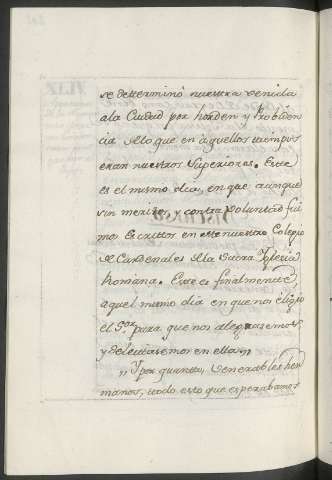 se determinó nuestra venida
ala Ciudad por horden y Probiden
cia de lo que en aquellos tiempos
eran nuestros Superiores. Este
es el mismo dia, en que, aunque
sin meritos, contra voluntad fui
mos Escrittos en este nuestro Colegio
de Cardenales de la Sacra Yglesia
Romana. Este es finalmente,
aquel mismo dia en que no eligio
el S.or para que nos alegrasemos
y deleitasemos en ella,,
,, Y por quanto, Venerables her
manos, todo esto que esperabamos